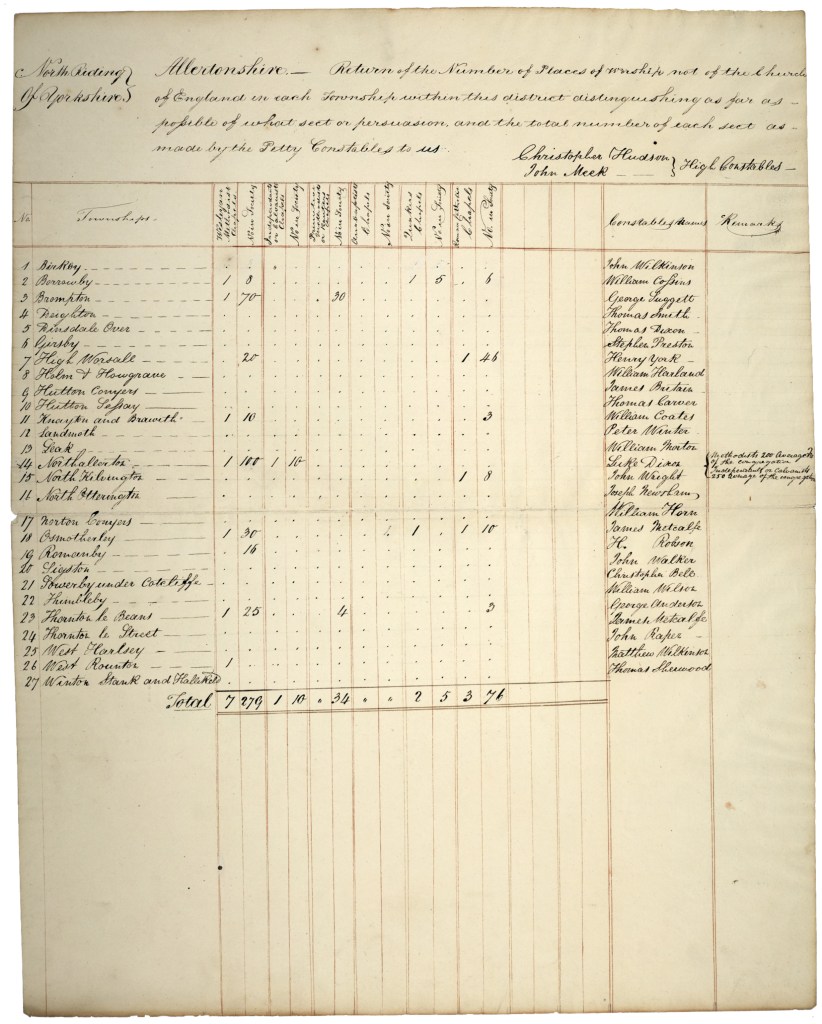 North Riding
Of Yorkshire
Allertonshire.— Return of the Number of Places of worship not of the Church
of England in each Township within this district distinguishing as far as
possible of what sect or persuasion, and the total number of each sect as
made by the Petty Constables to us.
Christopher Hudson
John Meek
High Constables
No. Townships. Wesleyan Methodist Chapels No in Socity Independents or Calvanists Chapels No in Socity No in Socity Anabaptists Chapels No in Socity Quakers Chapels No in Socity Roman Catholic Chapels No. in Socity Constables Names Remarks
1 Birkby John Wilkinson
2 Borrowby 1 8 1 5 6 William Cossins
3 Brompton 1 70 30 George Suggett
4 Deighton Thomas Smith
5 Dinsdale Over Thomas Dixon
6 Girsby Stephen Preston
7 High Worsall 20 1 46 Henry York
8 Holm & Howgrave William Harland
9 Hutton Conyers James Britain
10 Hutton Sessay Thomas Carver
11 Knayton and Brawith 1 10 3 William Coates
12 Landmoth Peter Winter
13 Leak William Morton
14 Northalerton 1 100 1 10 Luke Dixon Methodists 200 Average No of the congregation
15 North Kilvington 1 8 John Wright Independents or Calvanists 250 Average of the congregation
16 North Otterington Joseph Newsham
17 Norton Conyers William Horn
18 Osmotherley 1 30 1 1 10 James Metcalfe
19 Romanby 16 H. Robson
20 Sigston John Walker
21 Sowerby under Cotcliffe Christopher Bell
22 Thimbleby William Wilson
23 Thornton le Beans 1 25 4 3 George Anderson
24 Thornton le Street James Metcalfe
25 West Harlsey John Raper
26 West Rounton 1 Matthew Wilkinson
27 Winton Stank and Hallikeld Thomas Sherwood
Total 7 279 1 10 " 34 " " 2 5 3 76